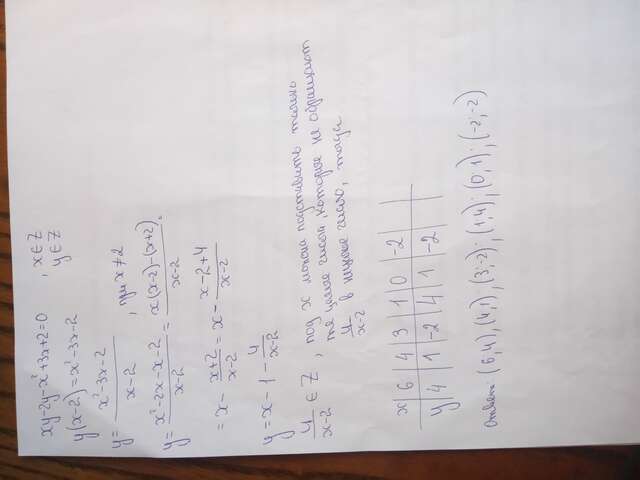 xy-2y-x²+3x+2=0 , x∈Z
y∈Z
y(x-2)=x²-3x-2
y= x²-3x-2 / x-2 , при x≠2
y= x²-2x-x-2 / x-2 = x(x-2)-(x+2) / x-2 =
= x - x+2 / x-2 = x - x-2+4 / x-2
y=x-1- 4 / x-2
4 / x-2 ∈ Z , под x можно подставить только
те целые числа, которые не обращают
4 / x-2 в нецелое число, тогда
x | 6 | 4 | 3 | 1 | 0 | -2
y | 4 | 1 | -2 | 4 | 1 | -2
Ответ: (6,4); (4,1); (3;-2); (1;4); (0,1); (-2;-2)